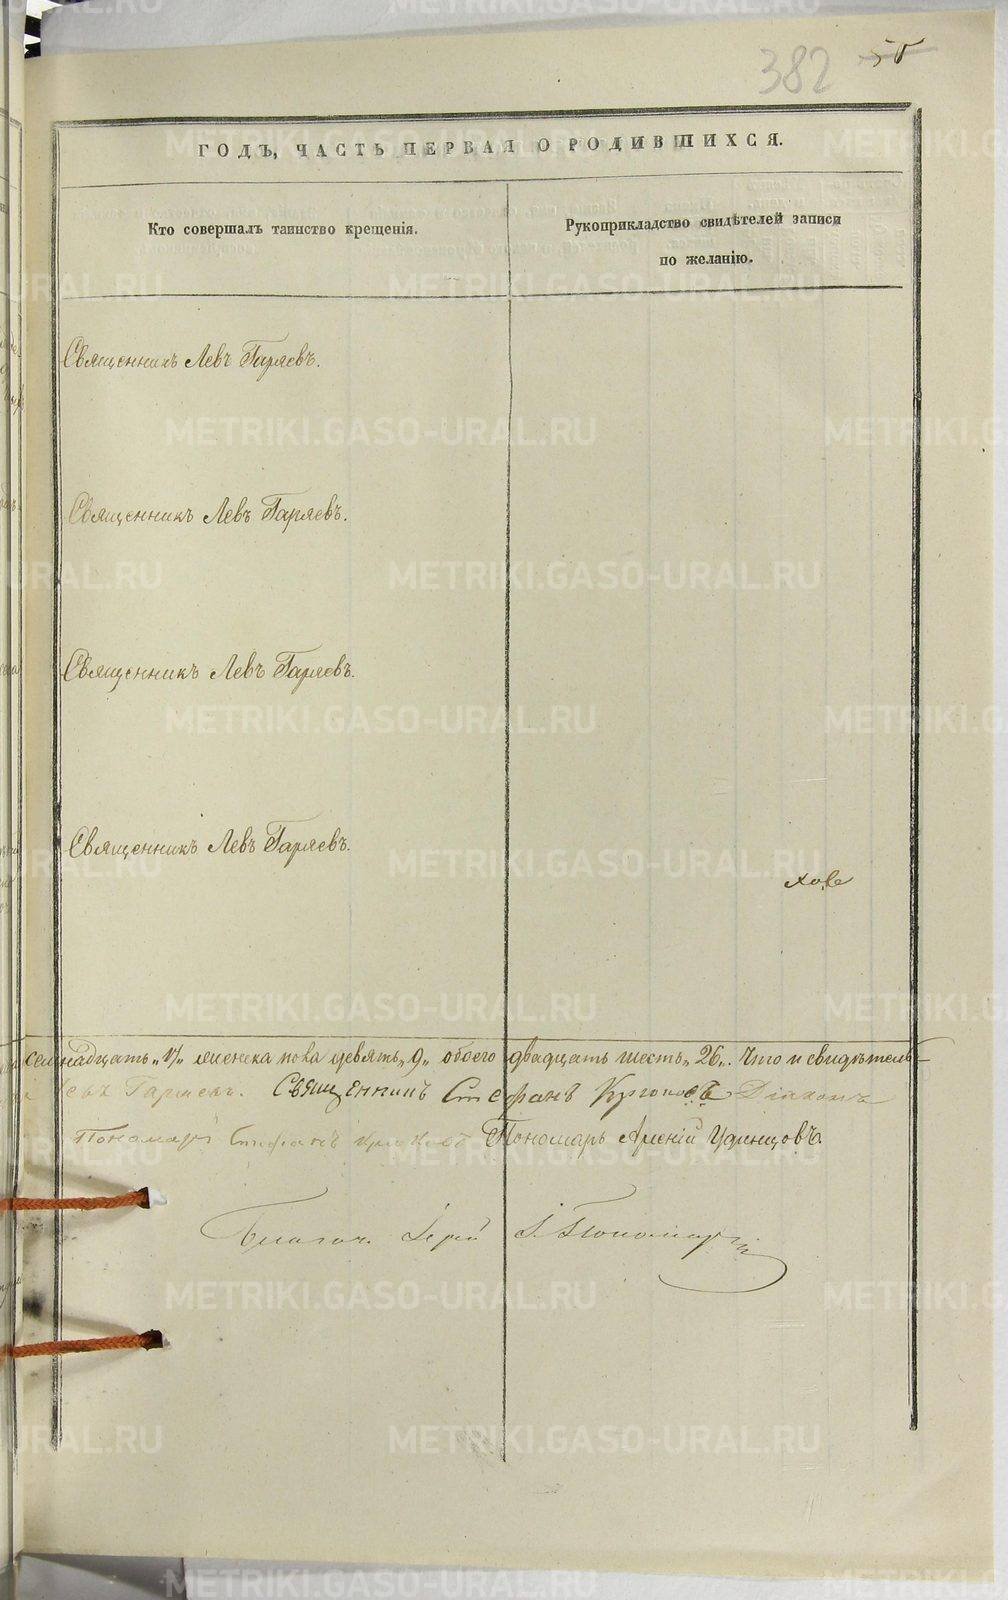 382 50
ГОДЪ, ЧАСТЬ ПЕРВАЯ О РОДИВШИХСЯ.
Кто совершалъ таинство крещенія.
Рукоприкладство свидѣтелей записи
по желанію.
Священникъ Левъ Гаряевъ.
Священникъ Левъ Гаряевъ.
Священникъ Левъ Гаряевъ.
Священникъ Левъ Гаряевъ.
семнадцать „17„ женска пола девять „9„ обоего двадцать шесть „26„. Что и свидѣтель
Левъ Гаряевъ. Священникъ Стефанъ Крюковъ Діаконъ
Пономарь Стефанъ Крюковъ Пономарь Арсеній Удинцовъ
Благоч. Іерей І. Пономарев
METRIKI.GASO-URAL.RU